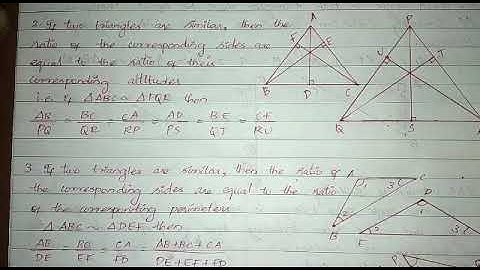 2. If two triangles are similar, then the
ratio of the corresponding sides are
equal to the ratio of their
corresponding altitudes
i.e. if △ABC ~ △PQR then
AB/PQ = BC/QR = CA/RP = AD/PS = BE/QT = CF/RU
A
F E
B D C
P
U T
Q S
3. If two triangles are similar, then the ratio of
the corresponding sides are equal to the ratio
of the corresponding perimeters
△ABC ~ △DEF then
AB/DE = BC/EF = CA/FD = AB+BC+CA/DE+EF+FD
A 1 3 C
B 2
D
1
E 2 3
P